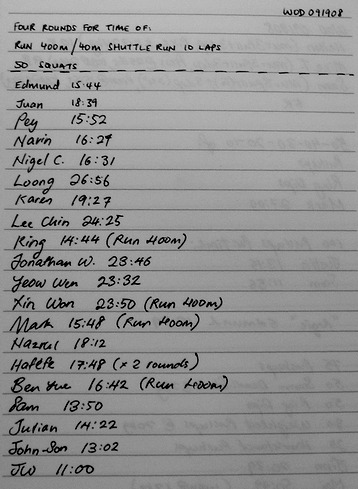 WOD 091908
FOUR ROUNDS FOR TIME OF:
RUN 400M/40M SHUTTLE RUN 10 LAPS
50 SQUATS
Edmund 15:44
Juan 18:39
Pey 15:52
Navin 16:27
Nigel C. 16:31
Loong 26:56
Karen 19:27
Lee Chin 24:25
King 14:44 (Run 400m)
Jonathan W. 23:46
Yeow Wen 23:32
Xin Wan 23:50 (Run 400m)
Mark 15:48 (Run 400m)
Nazrul 18:12
17:48 (x 2 rounds)
Ben Yue 16:42 (Run 400m)
Sam 13:50
Julian 14:22
John-Son 13:02
JW 11:00